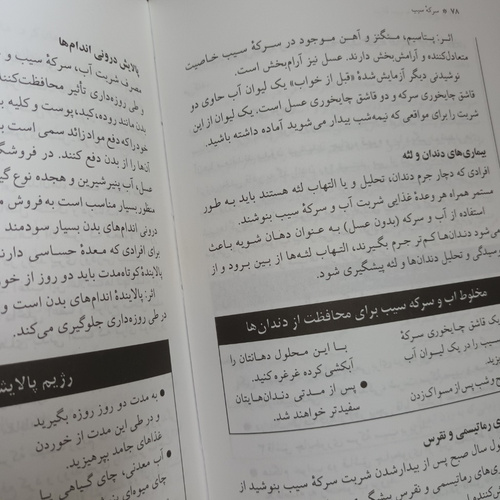 ۷۸ * سرکهٔ سیب
اثر: پتاسیم، منگنز و آهن موجود در سرکهٔ سیب خاصیت
متعادل‌کننده و آرامش‌بخش دارند. عسل نیز آرام‌بخش است.
نوشیدنی دیگر آزمایش‌شدهٔ «قبل از خواب» یک لیوان آب حاوی دو
قاشق چایخوری سرکه و دو قاشق چایخوری عسل است. یک لیوان از این
شربت را برای مواقعی که نیمه‌شب بیدار می‌شوید آماده داشته باشید.
بیماری‌های دندان و لثه
افرادی که دچار جرم دندان، تحلیل و یا التهاب لثه هستند باید به طور
مستمر همراه هر وعدهٔ غذایی شربت آب و سرکهٔ سیب بنوشند.
استفاده از آب و سرکه (بدون عسل) به عنوان دهان شویه باعث
می‌شود دندان‌ها کم‌تر جرم بگیرند، التهاب لثه‌ها از بین برود و از
پوسیدگی و تحلیل دندان‌ها و لثه پیشگیری شود.
مخلوط آب و سرکه سیب برای محافظت از دندان‌ها
یک قاشق چایخوری سرکهٔ
سیب را در یک لیوان آب
بریزید.
پس از مسواک زدن
با این محلول دهانتان را
آبکشی کرده غرغره کنید.
● پس از مدتی دندان‌هایتان
سفیدتر خواهند شد.
رماتیسمی و نقرس
سال صبح پس از بیدارشدن شربت سرکهٔ سیب بنوشید از
رماتیسمی و نقرس پیشگیری
پالایش درونی اندام‌ها
مصرف شربت آب، سرکهٔ سیب و
و طی روزه‌داری تأثیر محافظت‌کننده
بدن مانند روده، کبد، پوست و کلیه
خود را که دفع مواد زائد سمی است
آن‌ها را از بدن دفع کنند. در
عسل، آب پنیر شیرین و هجده نوع
منظور بسیار مناسب است به فروش
درونی اندام‌های بدن بسیار سودمند
برای افرادی که معدهٔ حساسی دارند
پالایندهٔ کوتاه‌مدت باید دو روز از
اثر: پالایندهٔ اندام‌های بدن است و
در طی روزه‌داری جلوگیری می‌کند.
رژیم
● به مدت دو روز روزه بگیرید
و در طی این مدت از خوردن
غذاهای جامد بپرهیزید.
● آب معدنی، چای گیاهی یا
چای میوه‌ای